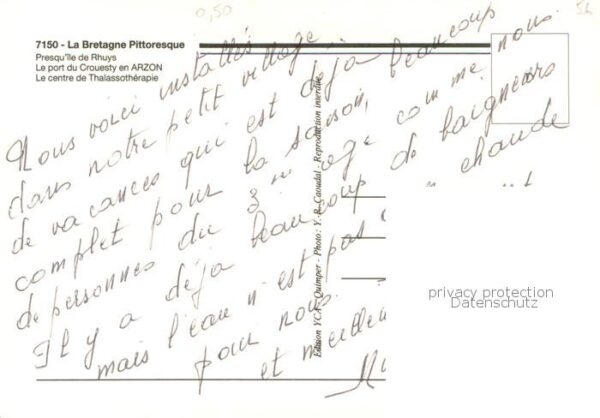 0,50
56
7150 - La Bretagne Pittoresque
Presqu'île de Rhuys
Le port du Crouesty en ARZON
Le centre de Thalassothérapie
Nous voici installés
dans notre petit village
de vacances qui est déjà beaucoup
complet pour la saison,
de personnes du 3me age comme nous
Il y a déja beaucoup de baigneurs
mais l'eau n'est pas chaude
pour nous.
et meilleu
Edition YCA - Quimper - Photo : Y.-R. Caoudal - Reproduction interdite
privacy protection
Datenschutz